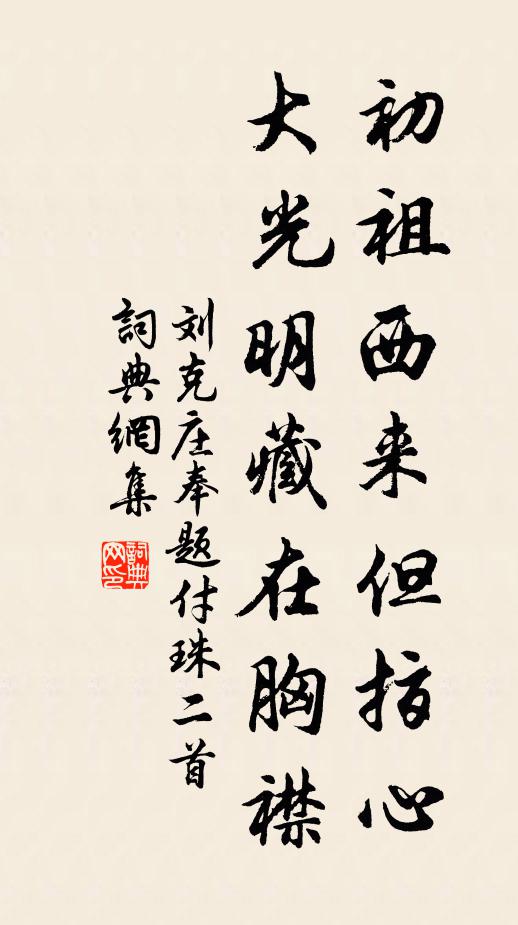 初祖西来但指心
大光明藏在胸襟
刘克庄奉题付珠二首
詞典網集
詞典網印